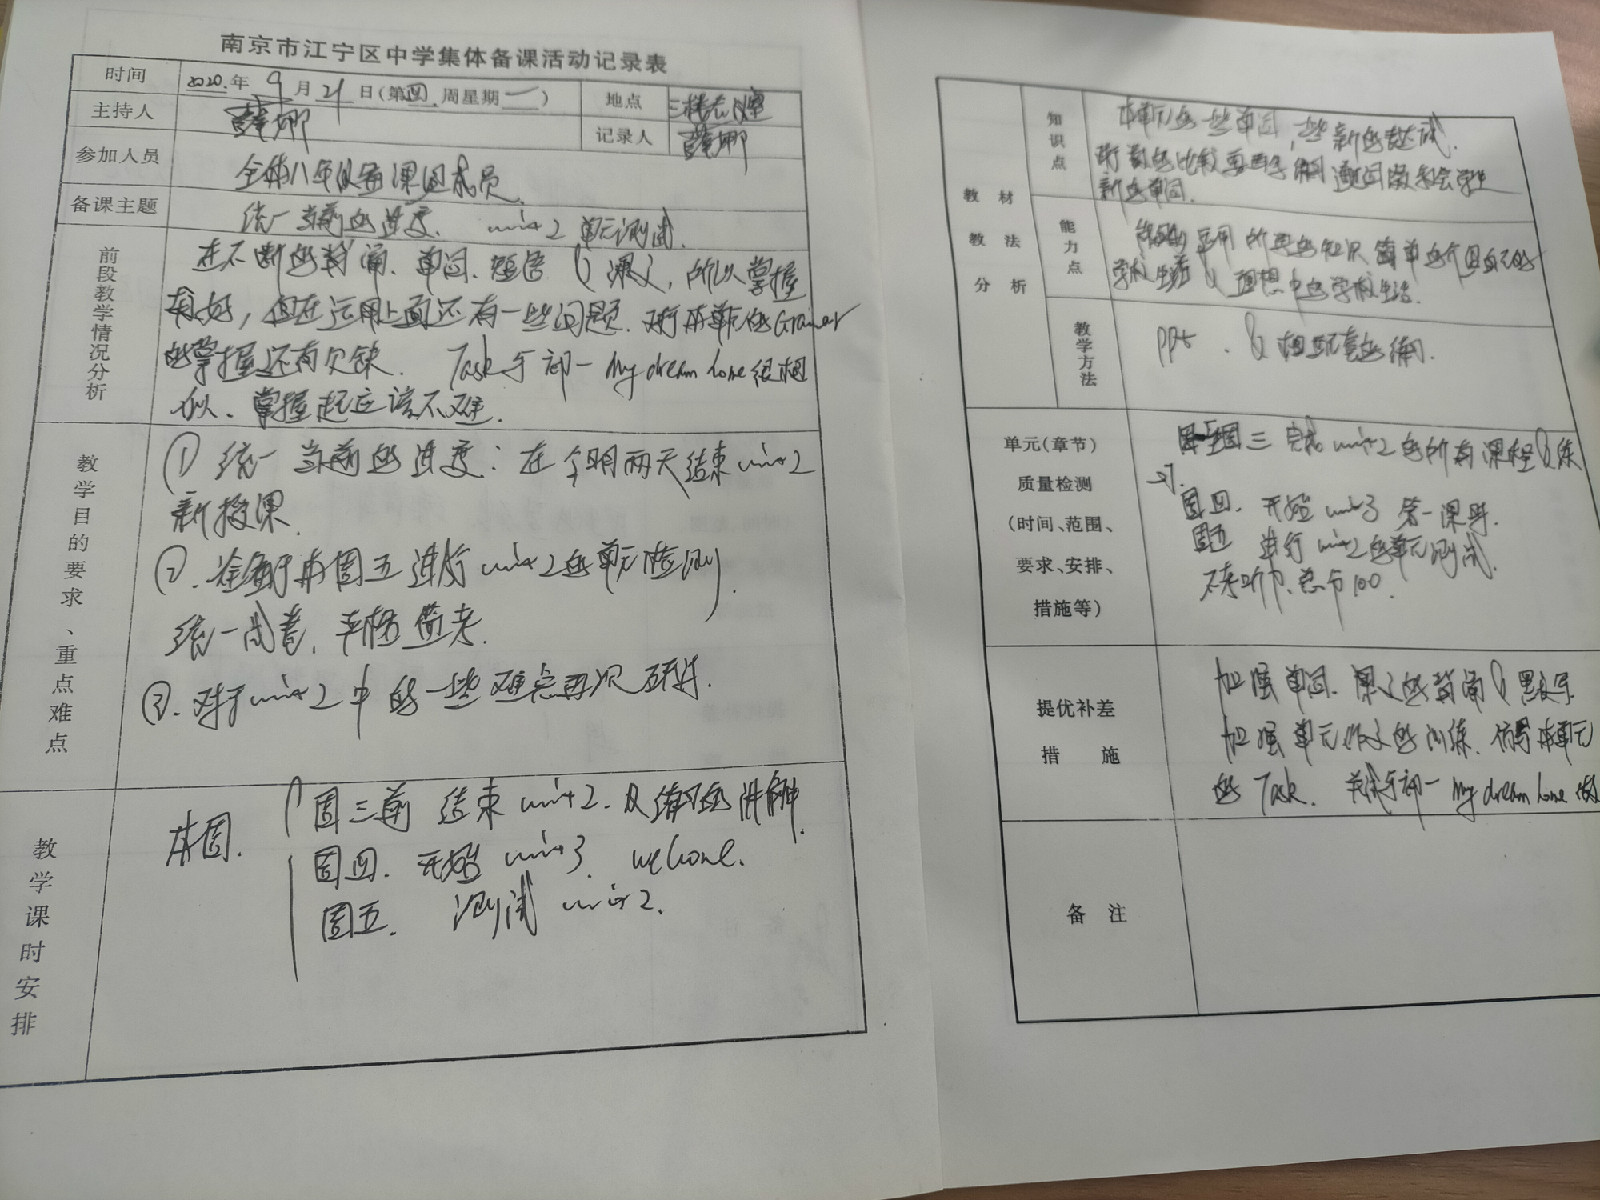 南京市江宁区中学集体备课活动记录表
时间 2020.年 9 月 21 日(第四.周星期一) 地点 三楼
主持人 薛娜 记录人 薛娜
参加人员 全体八年级备课组成员.
备课主题 统一当前的进度. unit 2 单元测试.
前段教学情况分析
在不断的背诵、单词、短语 & 课文,所以掌握
较好,但在运用上面还有一些问题.对于本单元的Grammar
的掌握还有欠缺. Task与 部一 My dream home 很相
似、掌握起应该不难.
教学目的要求、重点难点
① 统一当前的进度:在今明两天结束unit 2
新授课.
②. 本周五进行 unit 2 的单元检测
统一试卷,严格监考.
③. 对于unit 2 中的一些难点再次研讨.
教学课时安排
本周.
周三前 结束 unit 2. 及练习的讲解.
周四. 开始 unit 3 welcome.
周五. 测试 unit 2.
教材教法分析
知识点
本单元的一些单词,一些新的表达式.
对数的比较
新的单词.
能力点
能够运用所学的知识简单的介绍自己的
学校生活 & 理想中的学校生活.
教学方法
PPt . & 相配套的
单元(章节)
质量检测
(时间、范围、
要求、安排、
措施等)
周三 完成 unit 2 的所有课程 & 练
习.
周四. 开始 unit 3 第一课时.
周五 进行 unit 2 的单元测试.
不考听力、总分100.
提优补差
措施
加强单词、课文的背诵 & 默写.
加强单元作文的训练. 仿写本单元
的 Task. My dream home
备注